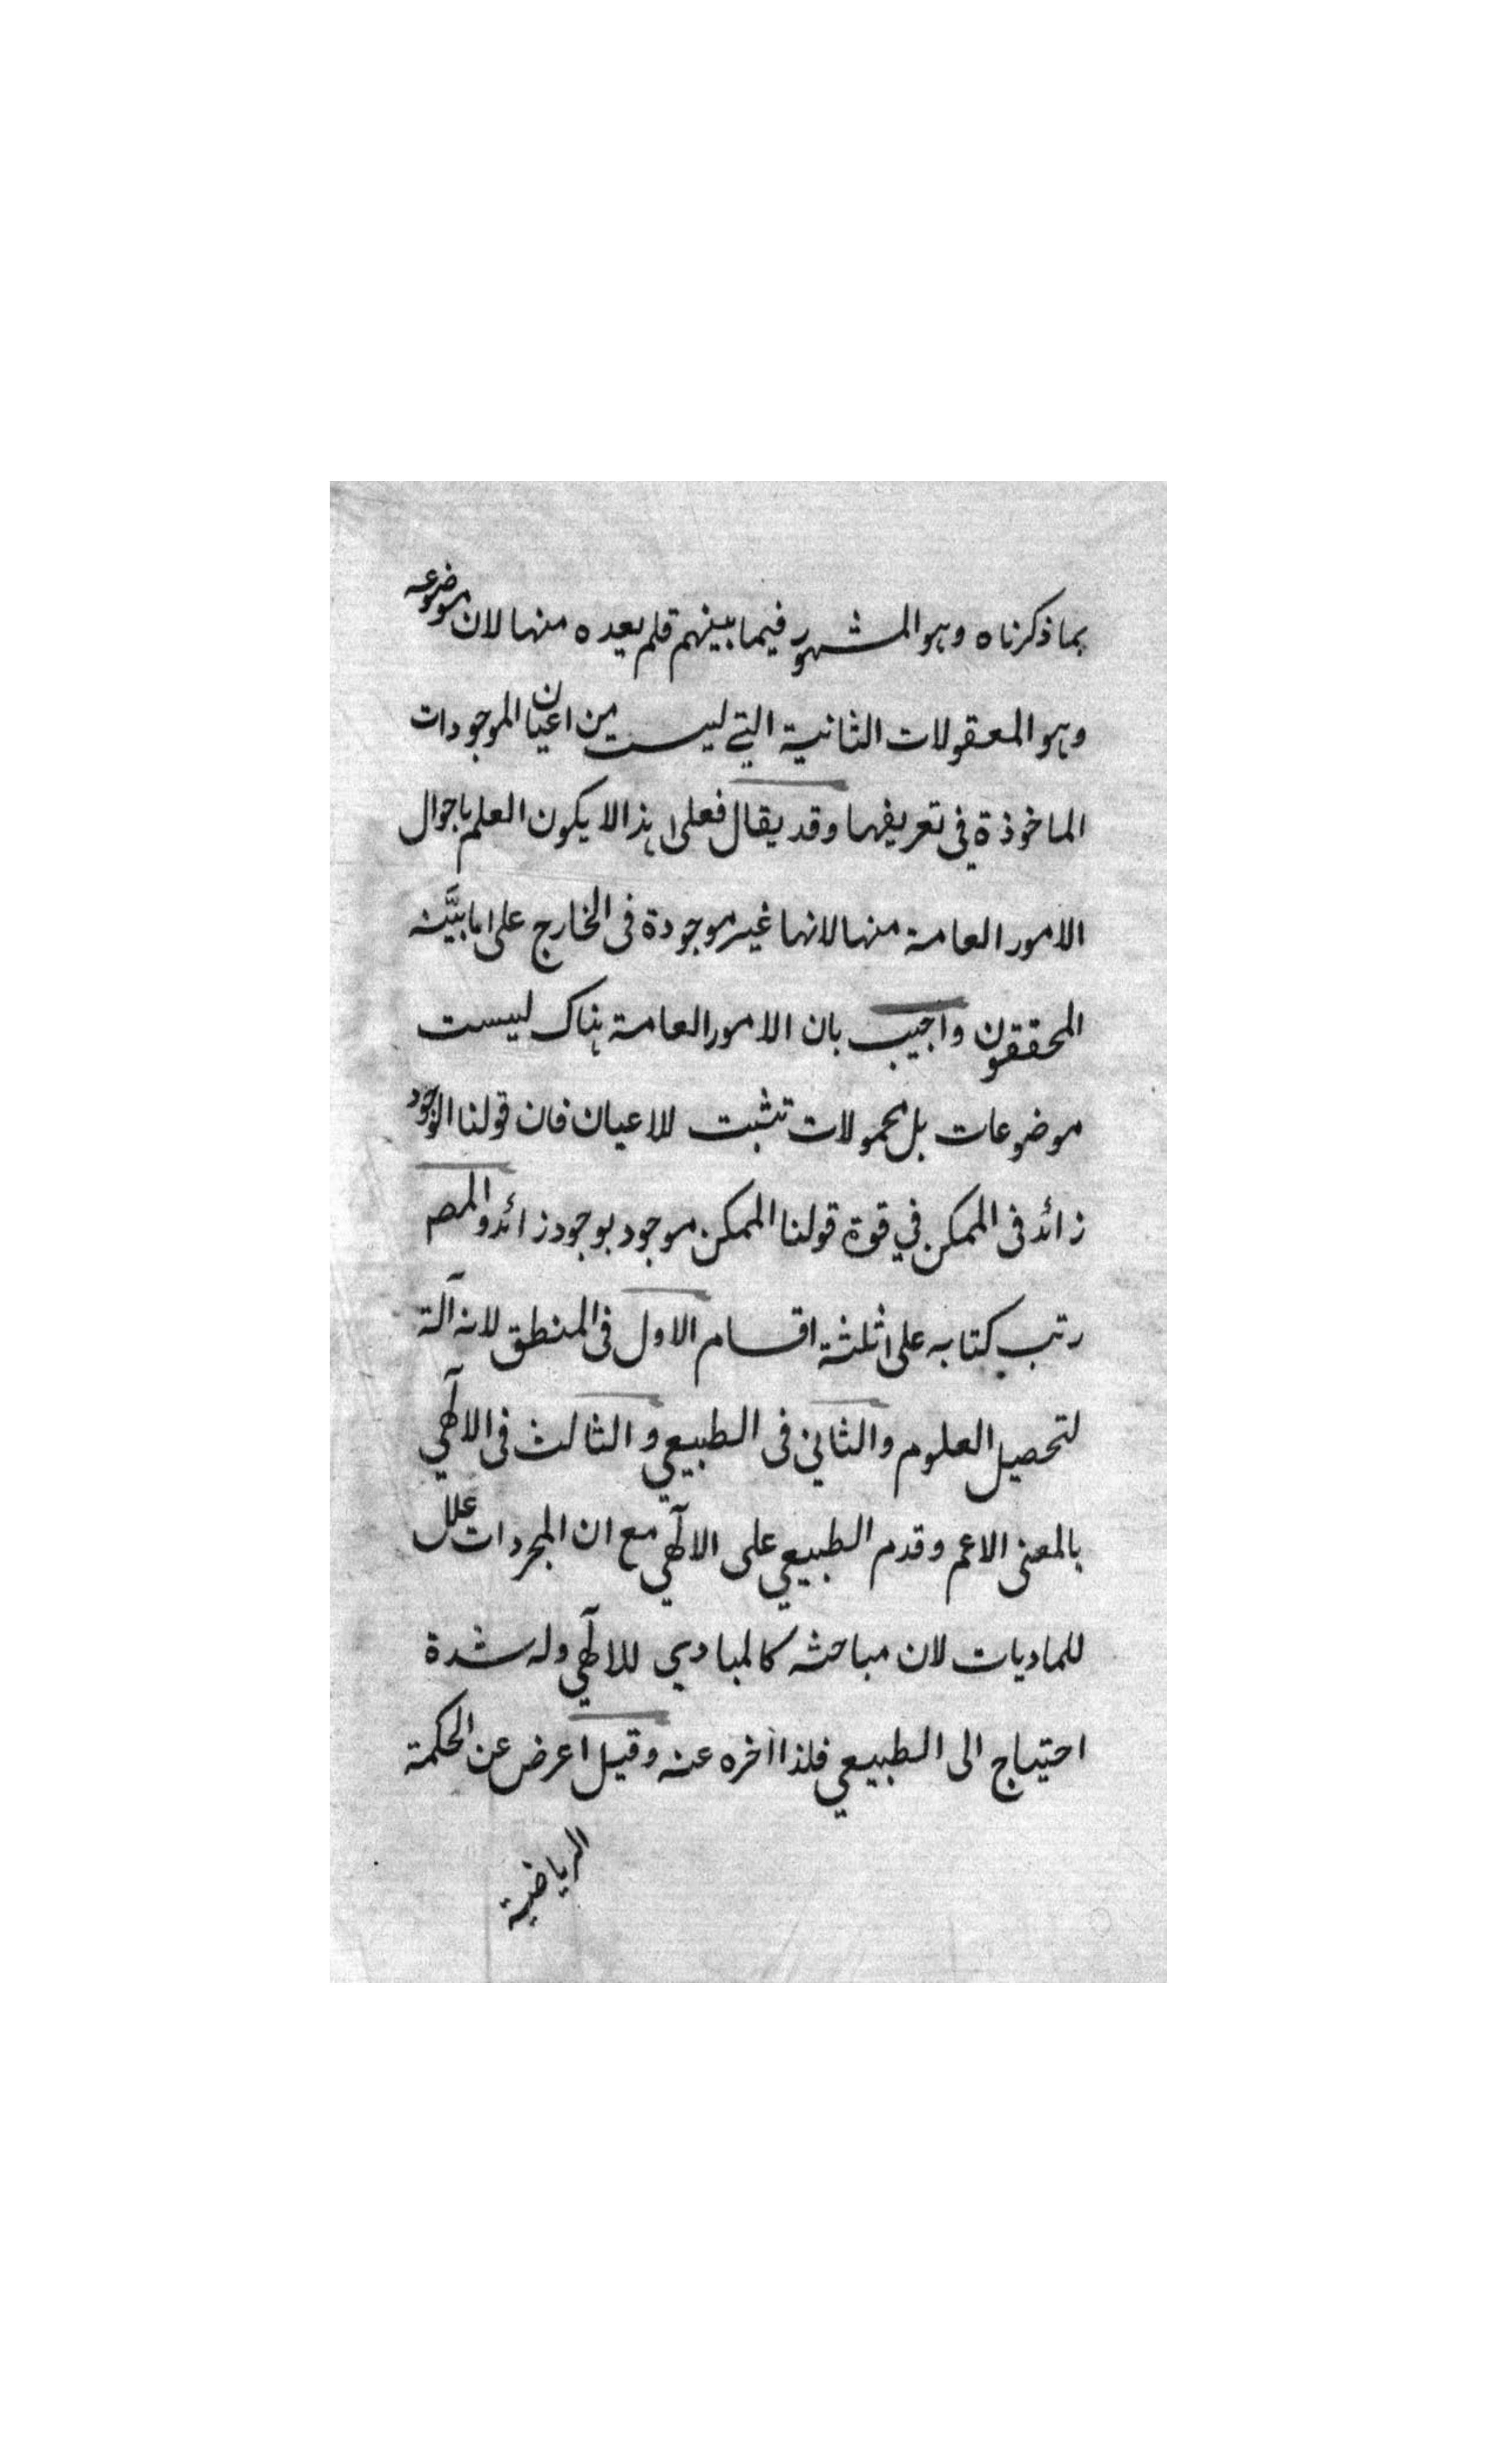 بما ذكرناه وهو المشهور فيما بينهم قلم يعده منها لان موضوعه
وهو المعقولات الثانية التي ليست من اعيان الموجودات
الماخوذة في تعريفها وقد يقال فعلى هذا لا يكون العلم باحوال
الامور العامة منها لانها غير موجودة فى الخارج على ما بيَّنه
المحققون واجيب بان الامور العامة هناك ليست
موضوعات بل محمولات تثبت للاعيان فان قولنا الوجود
زائد فى الممكن في قوة قولنا الممكن موجود بوجود زائد والمصـ
رتب كتابه على ثلثة اقسام الاول فى المنطق لانه آلة
لتحصيل العلوم والثاني فى الطبيعي والثالث فى الالٓهي
بالمعنى الاعم وقدم الطبيعي على الالٓهي مع ان المجردات علل
للماديات لان مباحثه كالمبادي للالٓهي وله شدة
احتياج الى الطبيعي فلذا اخره عنه وقيل اعرض عن الحكمة
الرياضية